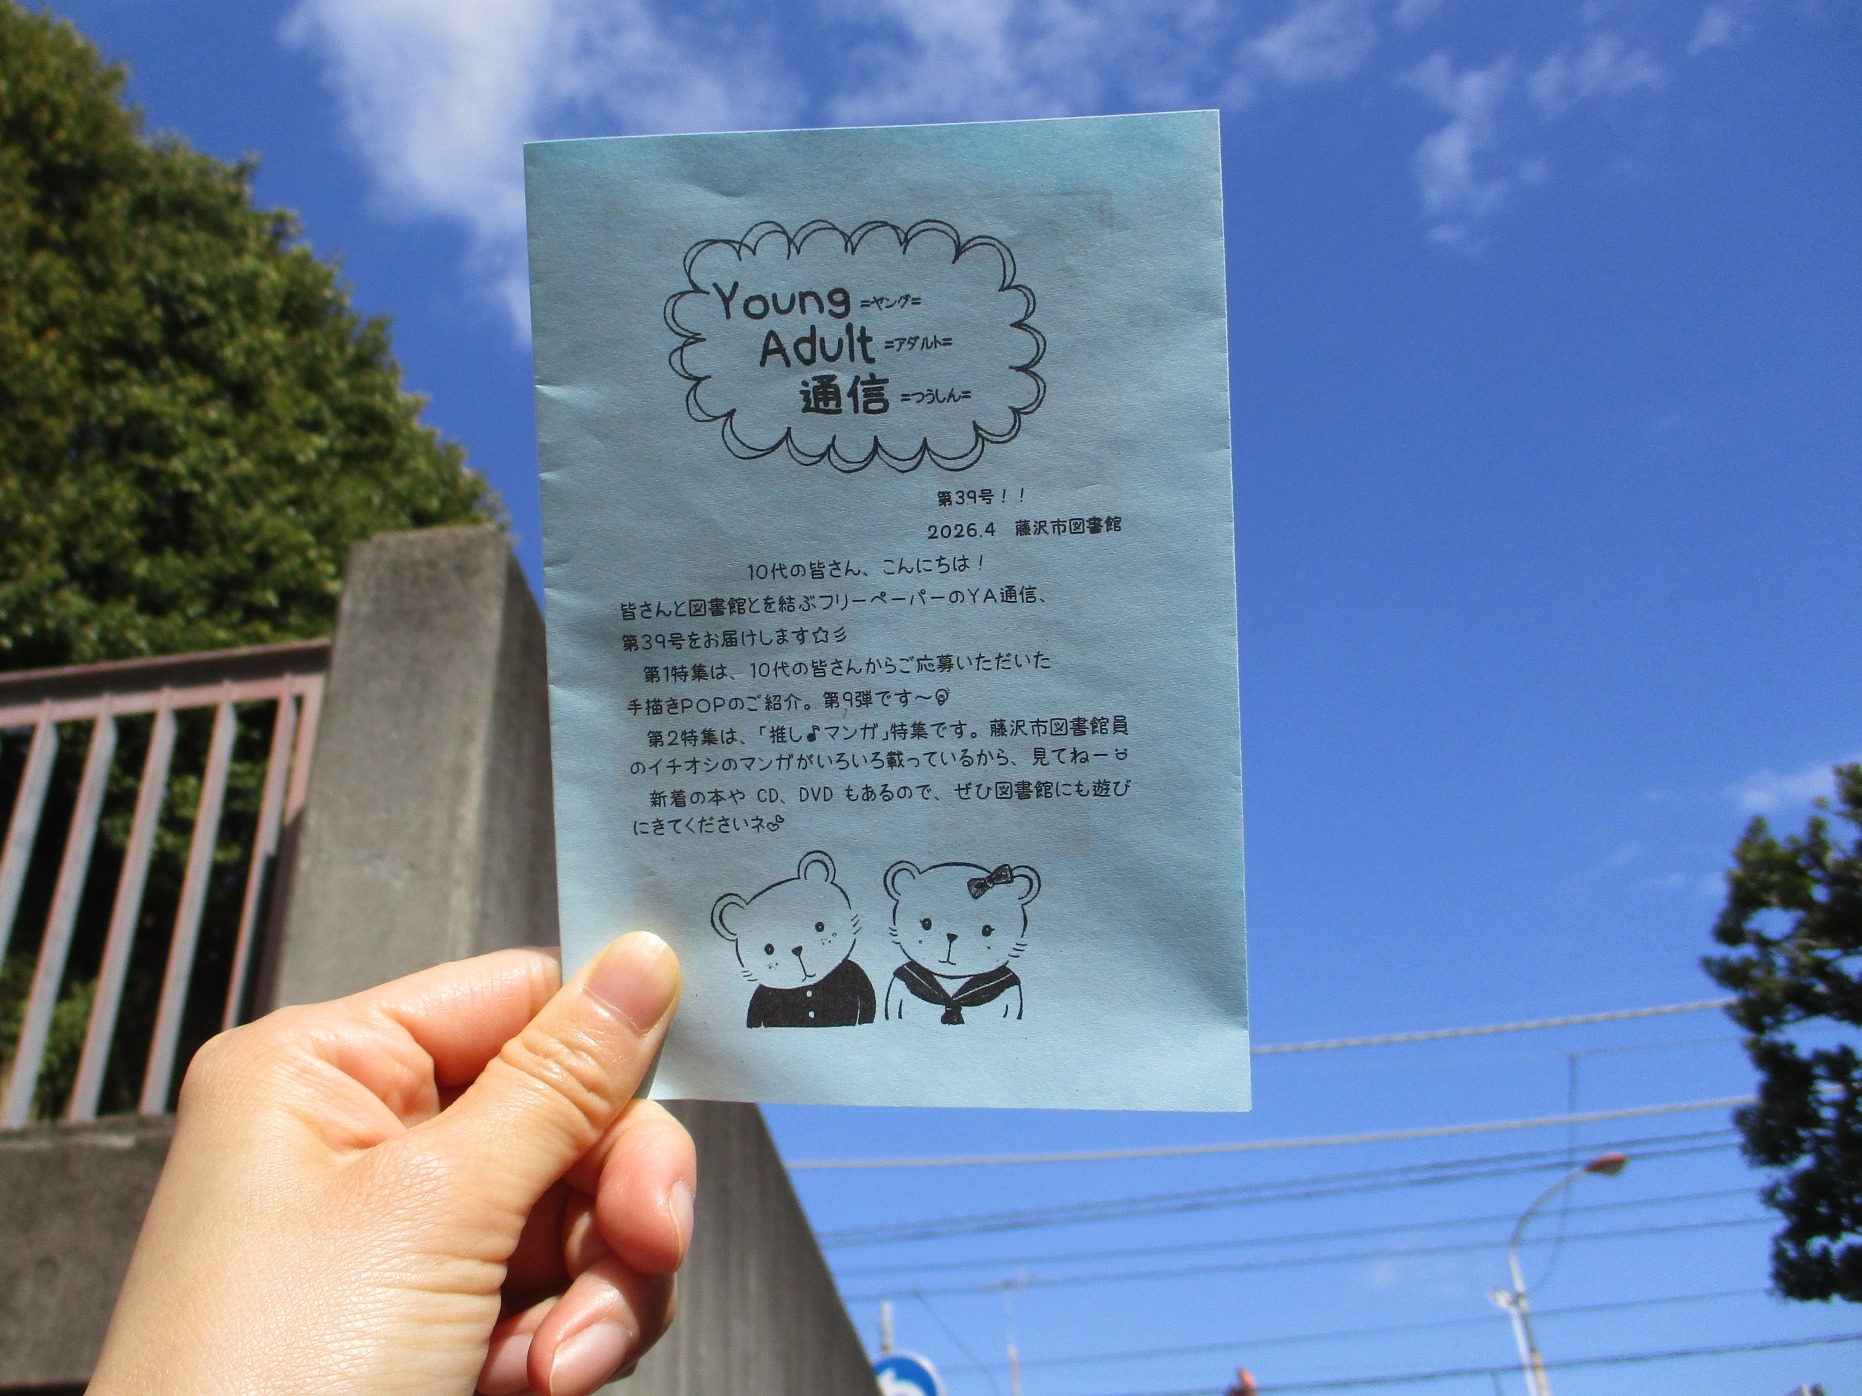 Young =ヤング=
Adult =アダルト=
通信 =つうしん=
第39号！！
2026.4 藤沢市図書館
10代の皆さん、こんにちは！
皆さんと図書館とを結ぶフリーペーパーのYA通信、
第39号をお届けします☆彡
第1特集は、10代の皆さんからご応募いただいた
手描きPOPのご紹介。第9弾です～
第2特集は、「推し♪マンガ」特集です。藤沢市図書館員
のイチオシのマンガがいろいろ載っているから、見てねー
新着の本や CD、DVD もあるので、ぜひ図書館にも遊び
にきてくださいネ